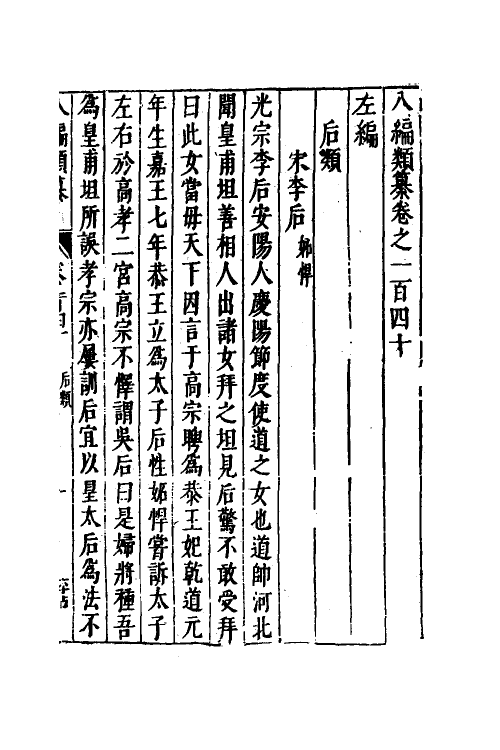 八編類纂卷之一百四十
左編
后類
宋李后 妬悍
光宗李后安陽人慶陽節度使道之女也道帥河北
聞皇甫坦善相人出諸女拜之坦見后驚不敢受拜
曰此女當母天下因言于高宗聘為恭王妃乾道元
年生嘉王七年恭王立為太子后性妬悍嘗訴太子
左右於高孝二宮高宗不懌謂吳后曰是婦將種吾
為皇甫坦所誤孝宗亦屢訓后宜以皇太后為法不
八編類纂 卷百四十 后類 一